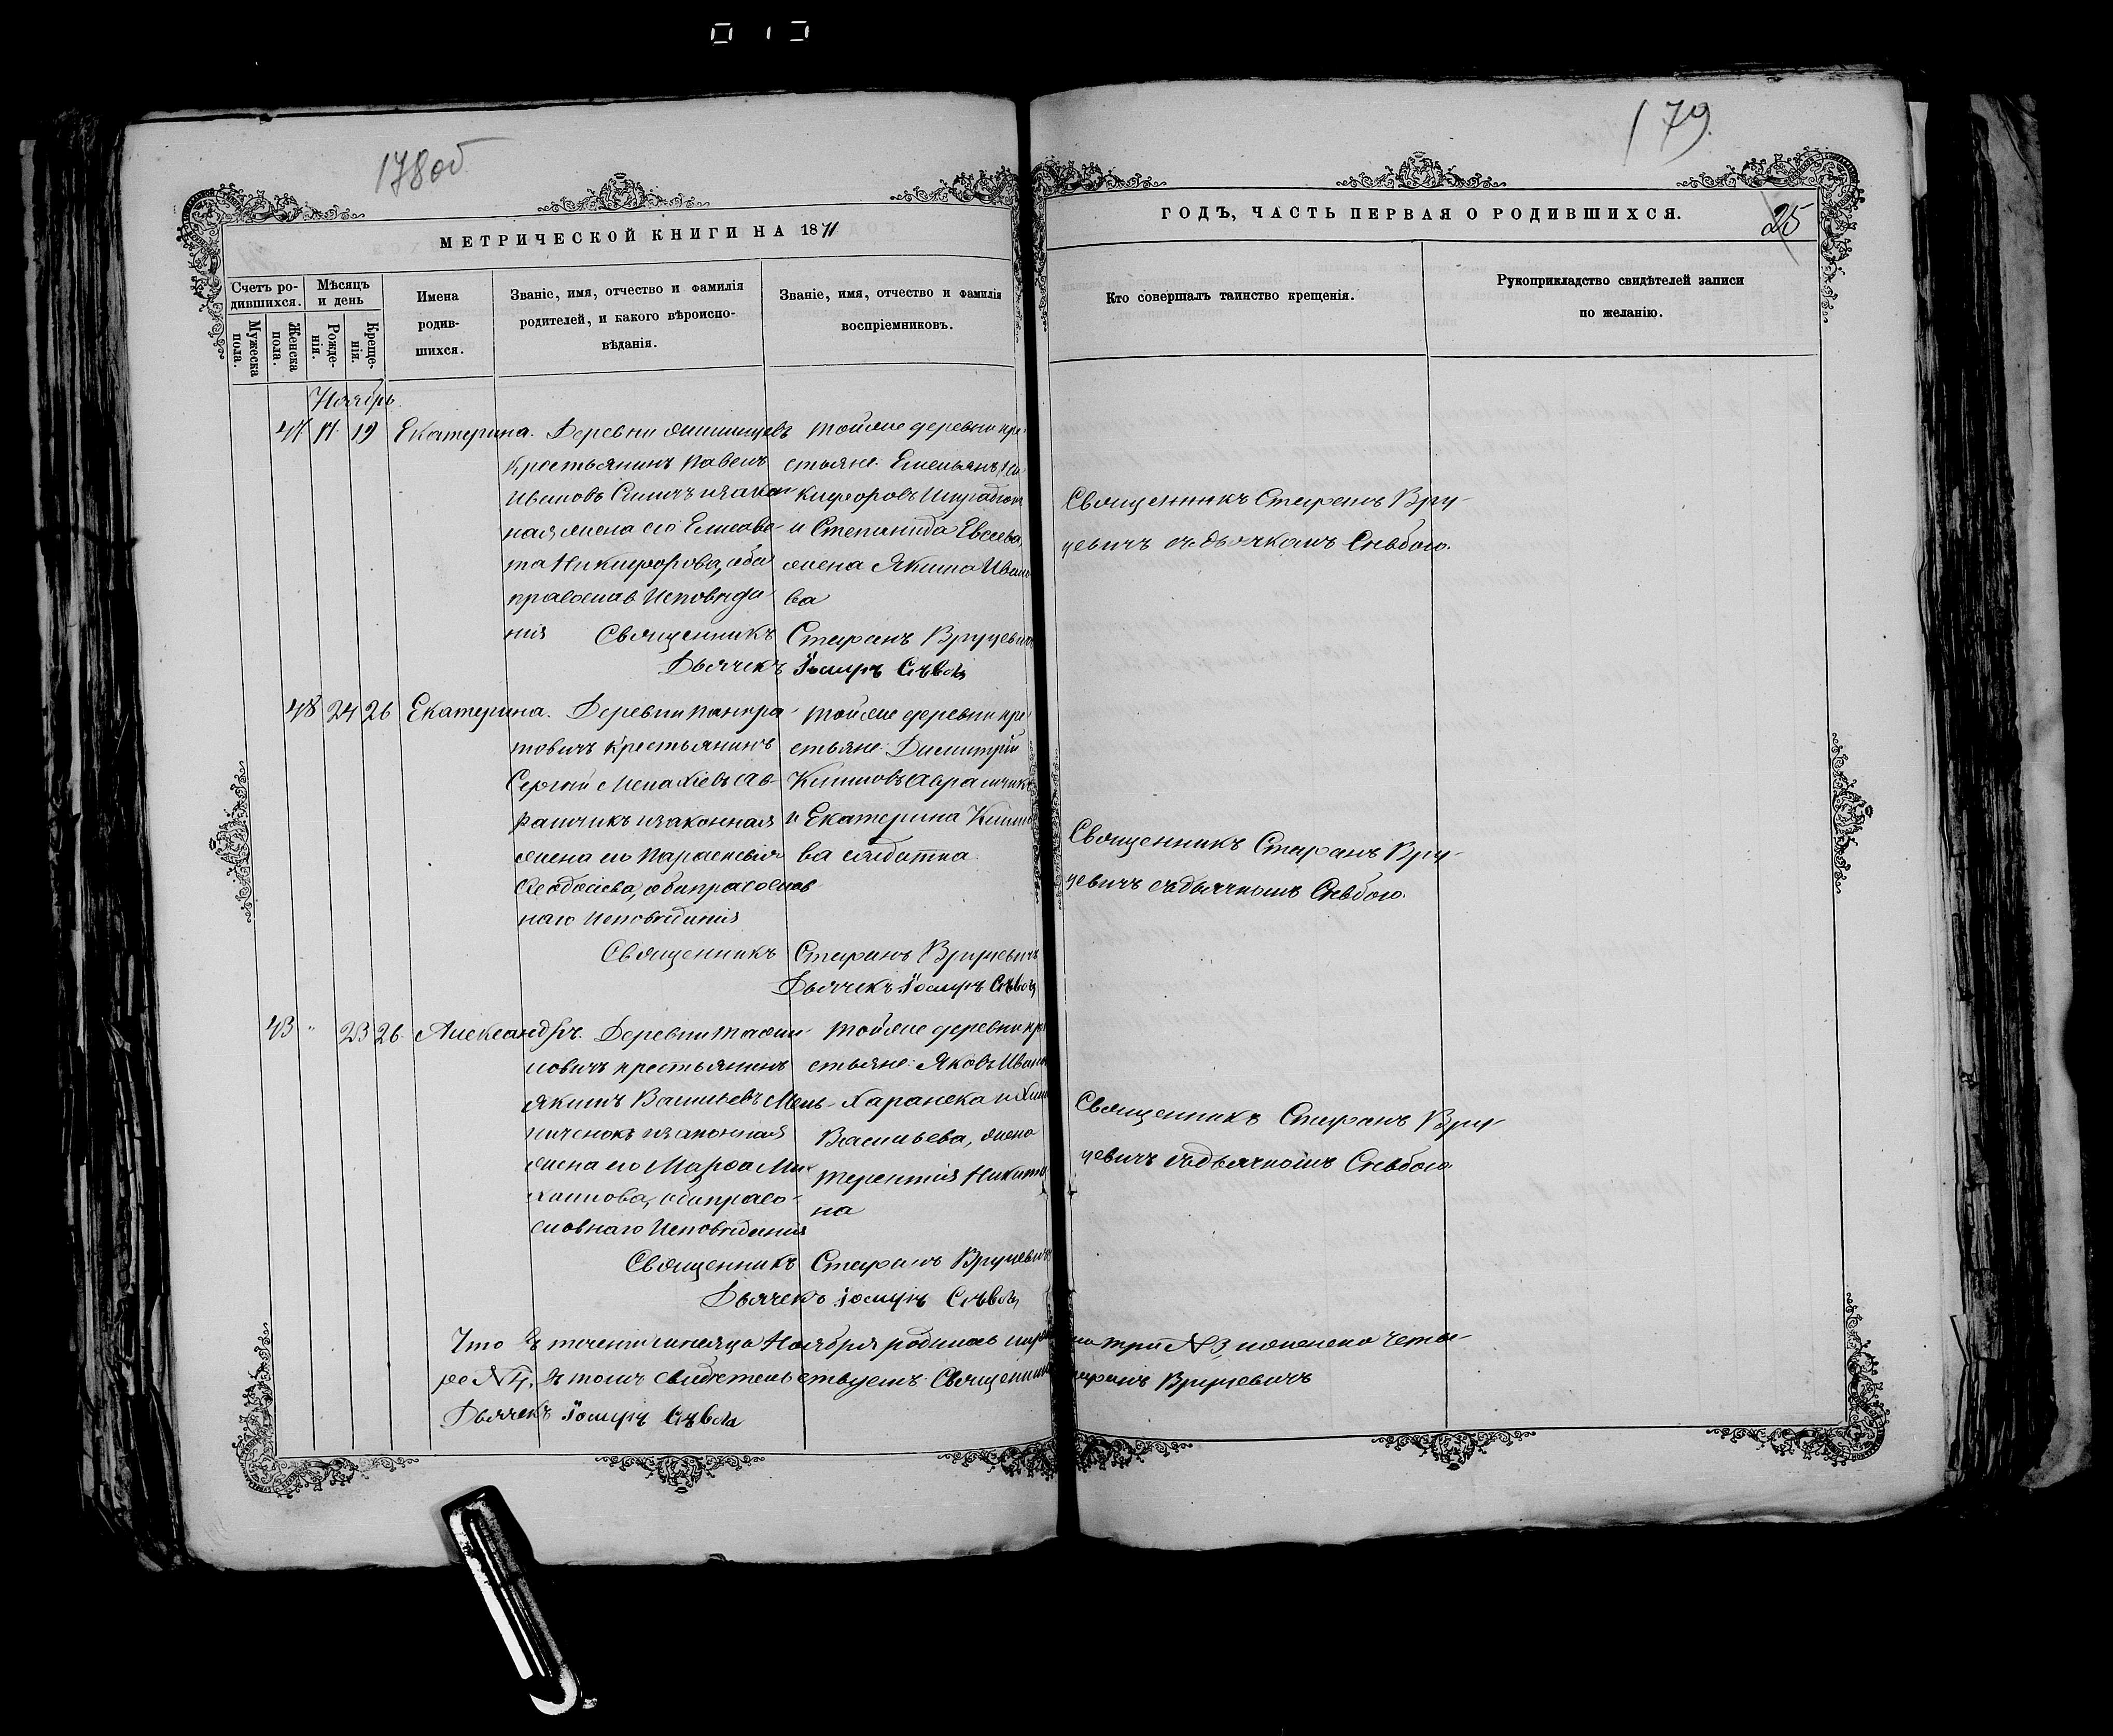 178об
179
МЕТРИЧЕСКОЙ КНИГИ НА 1871
ГОДЪ, ЧАСТЬ ПЕРВАЯ О РОДИВШИХСЯ.
25
Счетъ ро-
дившихся.
Мужеска
пола.
Женска
пола.
Мѣсяцъ
и день
Рожде-
нія.
Креще-
нія.
Имена
родив-
шихся.
Званіе, имя, отчество и фамилія
родителей, и какого вѣроиспо-
вѣданія.
Званіе, имя, отчество и фамилія
воспріемниковъ.
Кто совершалъ таинство крещенія.
Рукоприкладство свидѣтелей записи
по желанію.
Ноябрь
47 17 19 Екатерина.
Деревни
крестьянинъ Павелъ
Ивановъ и закон
ная жена его Елисаве
та Никифорова, оба
православ Исповѣда
нія
Тойже деревни кре
стьяне Емельянъ Ни
кифоровъ
и Степанида Евсеева,
жена Якима Ивано
ва
Священникъ Стефанъ Вруцевичъ
Дьячекъ Іосифъ
Священникъ Стефанъ Вру-
цевичъ съ дьячкомъ
48 24 26 Екатерина.
Деревни Панкра
товичъ крестьянинъ
Сергій Ав-
рамчикъ и законная
жена его Параскевія
Феодосіева, оба православ
наго Исповѣданія
Тойже деревни кре
стьяне Димитрій
Климовъ Аврамчикъ
и Екатерина Климо
ва солдатка.
Священникъ Стефанъ Вруцевичъ
Дьячекъ Іосифъ
Священникъ Стефанъ Вру-
цевичъ съ дьячкомъ
43 " 23 26 Александръ.
Деревни
крестьянинъ
Якимъ Васильевъ Мель-
ниченокъ и законная
жена его Марфа Ми
хаилова, оба право-
славнаго Исповѣданія
Тойже деревни кре
стьяне Яковъ Ивано
Васильева, жена
Терентія Никити
на
Священникъ Стефанъ Вруцевичъ
Дьячекъ Іосифъ
Священникъ Стефанъ Вру-
цевичъ съ дьячкомъ
Что въ теченіи мѣсяца Ноября родилось три № 3, четы-
ре № 4, въ томъ свидѣтельствуемъ: Священникъ Вруцевичъ
Дьячекъ Іосифъ